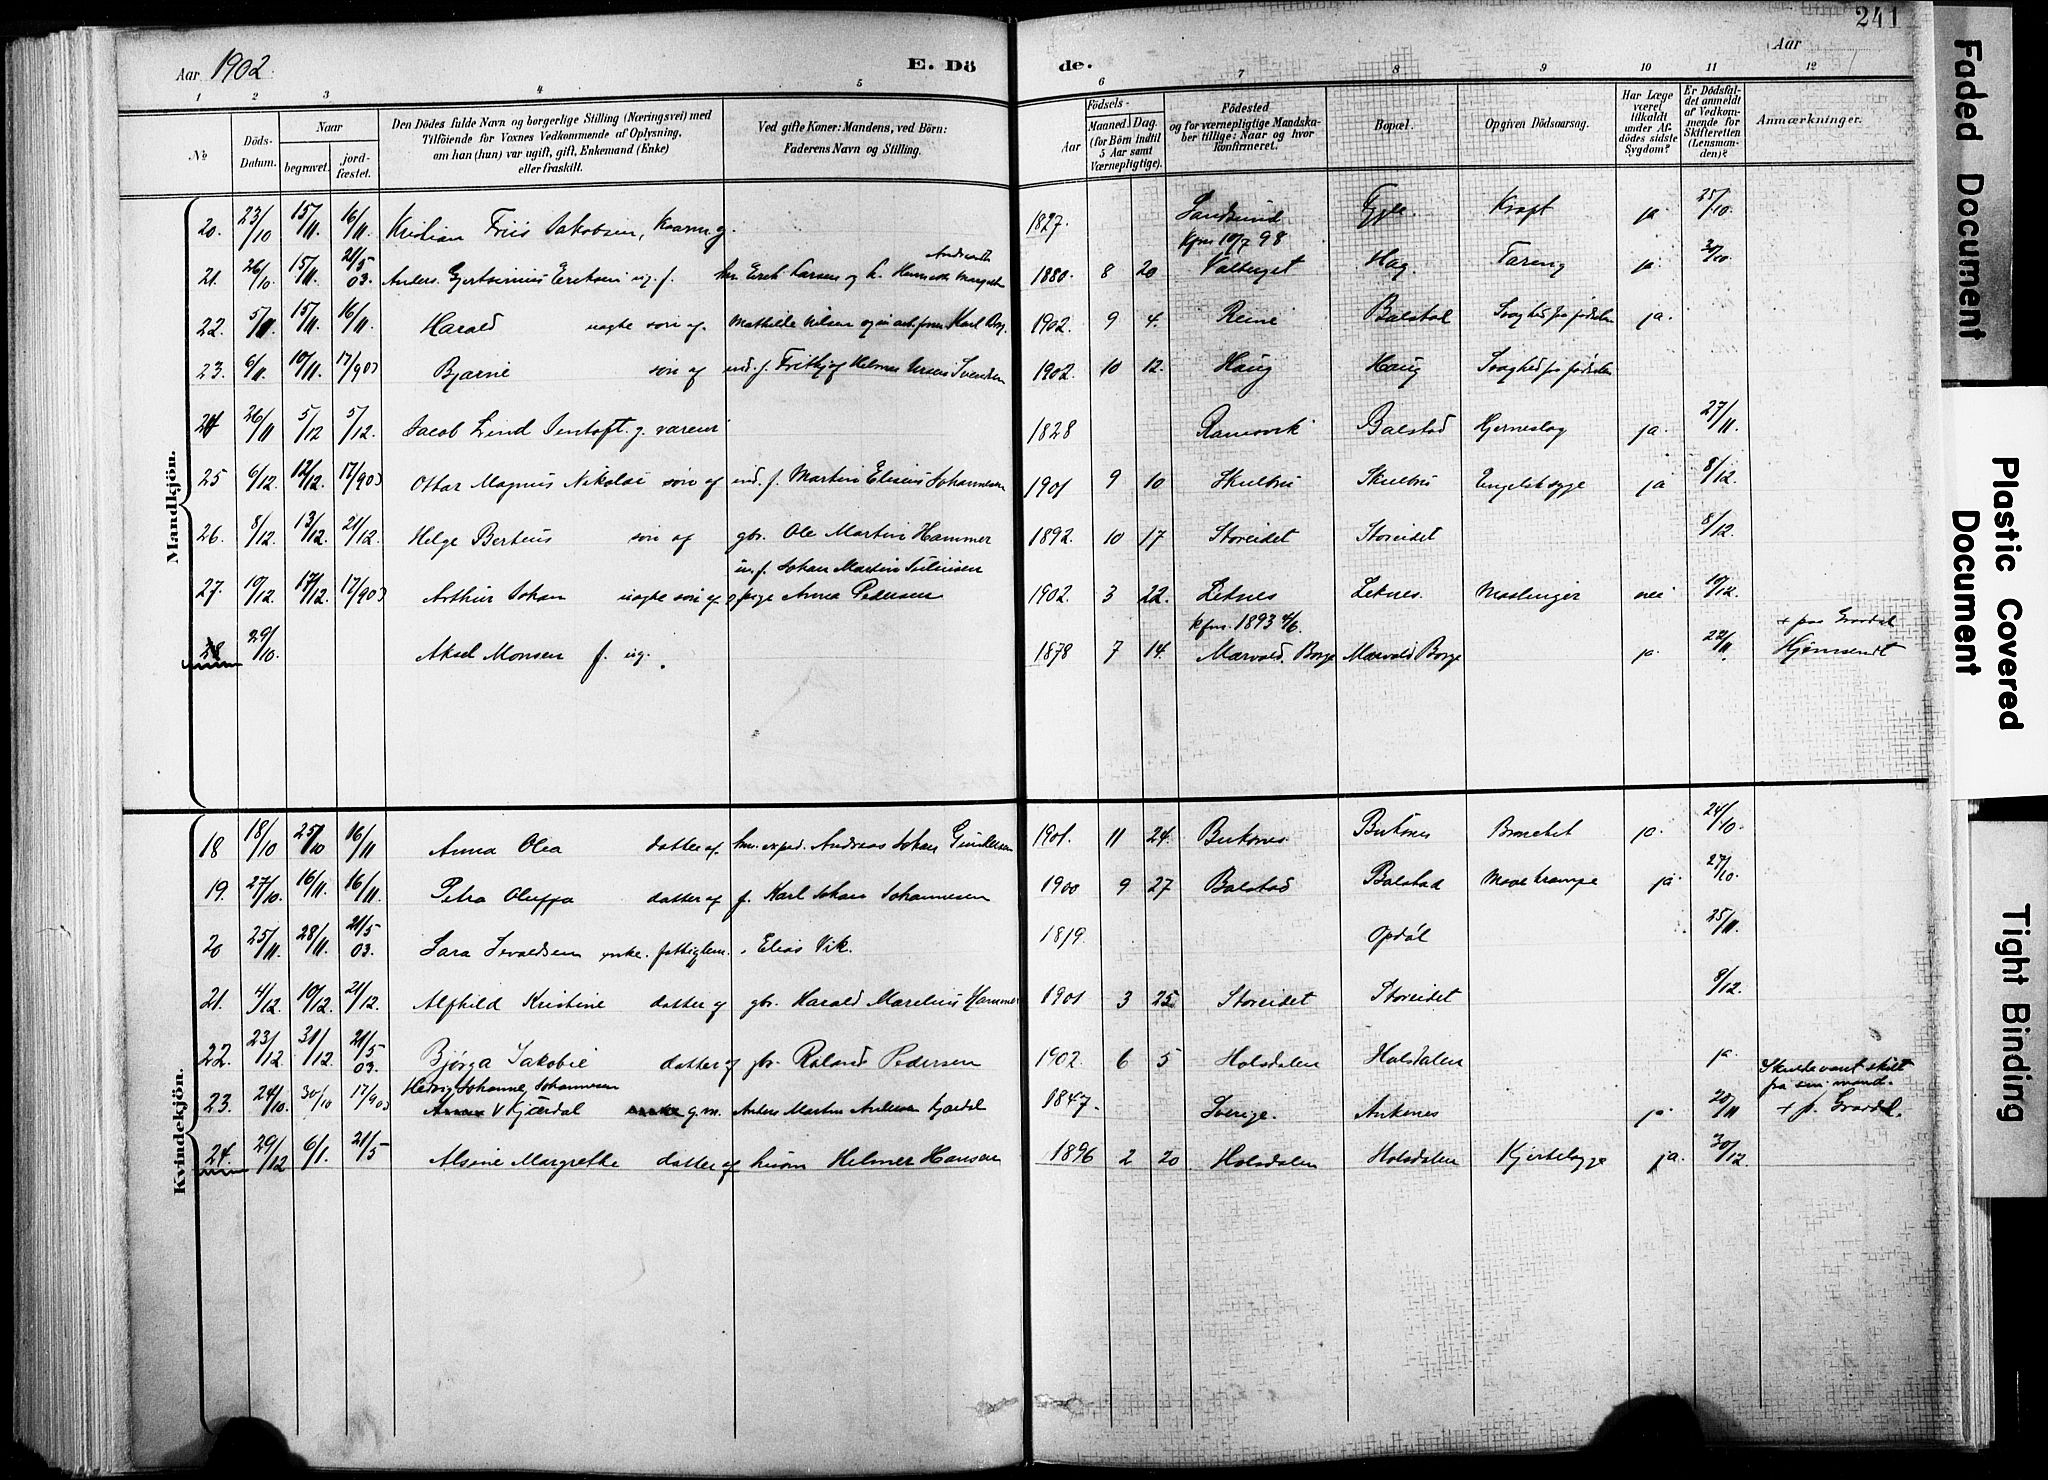 241
Aar 1902.
E. Döde.
Aar
1 2 3 4 5 6 7 8 9 10 11 12
№
Döds-Datum.
Naar
begravet.
jord-fæstet.
Den Dödes fulde Navn og borgerlige Stilling (Næringsvei) med
Tilföiende for Voxnes Vedkommende af Oplysning,
om han (hun) var ugift, gift, Enkemand (Enke)
eller fraskilt.
Ved gifte Koner: Mandens, ved Börn:
Faderens Navn og Stilling.
Födsels-
Aar
Maaned. Dag.
(for Börn indtil
5 Aar samt
Værnepligtige).
Födested
og for værnepligtige Mandska-
ber tillige: Naar og hvor
Konfirmeret.
Bopæl.
Opgiven Dödsaarsag.
Har Læge
været
tilkaldt
under Af-
dödes sidste
Sygdom?
Er Dödsfal-
det anmeldt
af Vedkom-
mende for
Skifteretten
(Lensman-
den)?
Anmærkninger.
Mandkjön.
20. 23/10 15/11. 16/11. Kristian Friis Jakobsen, g. 1827. Sandsund Kræft ja 25/10.
21. 26/10. 15/11. 21/5 03. Anders Eriksen ug. f. Erik Larsen og h. 1880. 8 20. kfm 10/7 98 Valberget Hag Tæring ja. 30/10
22. 5/11. 15/11. 16/11. Harald uægte søn af. Mathilde Nilsen og Karl 1902. 9 4. Reine Balstad Svaghed fra fødselen ja.
23. 6/11. 10/11. 17/903 Bjarne søn af ind. f. Fritjof Helmer Svendsen 1902. 10 12. Haug Haug Svaghed fra fødselen
24 26/11 5/12 5/12. Jacob Lind Jentoft. g. 1828 Ramsvik Balstad Hjerneslag ja. 27/11.
25 6/12. 12/12. 17/903 Ottar Magnus Nikolai søn af ind. f. Martin Elisius Johannesen 1901 9 10 Skulbru Skulbru Engelsksyge ja 8/12.
26. 8/12. 13/12. 21/12. Helge Berteus søn af gbr. Ole Martin Hammer 1892. 10 17 Storeidet Storeidet 8/12.
27. 10/12. 17/12. 17/903 Arthur Johan uægte søn af f. Johan Martin pige Anna Pedersen 1902. 3 22. Leknes Leknes. Mæslinger nei 10/12.
28 29/10. Aksel Monsen f. ug. 1878 7 14. kfm. 1893 4/6. Mærvold. Borge Mærvold Borge ja. 22/11. + paa Gravdal Hjemsendt
Kvindekjön.
18 18/10 25/10 16/11 Anna Olea datter af. exped. Andreas Johan 1901. 11 24. Buksnes. Buksnes ja. 24/10.
19. 27/10. 16/11. 16/11. Petra Oluffa datter af f. Karl Johan Johannesen 1900 9 27 Balstad Balstad Mavekrampe ja. 27/10.
20 25/11. 28/11. 21/5 03. Sara Sevaldsen enke. fattiglem. Elias Vik. 1819. Opdøl 25/11.
21. 4/12. 19/12. 21/12. Alfhild Kristine datter af gbr. Harald Marelius Hammer 1901 3 25 Storeidet Storeidet 9/12.
22. 23/12 31/12. 21/5 03. Bjørga Jakobie datter af gbr. Roland Pedersen 1902. 6 5 Holsdalen Holsdalen ja.
23. 24/10. 30/10 17/903 Hedvig Johanne Johannesen Kjærdal g.m. Anders Martin Andersen Kjærdal 1847. Sverige. Ankenes ja. 20/11 Skulde vært skilt fra sin mand. + p. Gravdal.
24. 29/12 6/1. 21/5 Alsine Margrethe datter af husm Helmer Hansen 1896 2 20 Holsdalen Holsdalen Kjertelsyge ja. 30/12.
Faded Document
Plastic Covered Document
Tight Binding